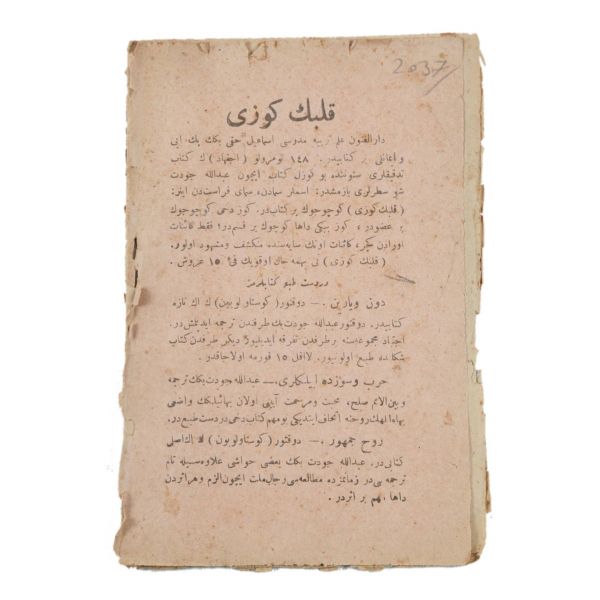 2037
قلبك كوزى
دارالفنون علم تربيه مدرسى اسماعيل حقى بكك پك ايى
بر كتابيدر. ١٤٨ نومرولو (اجتهاد) ك كتاب
تدقيقلرى ستوننده بو كوزل كتاب ايچون عبدالله جودت
شو سطرلرى يازمشدر:
(قلبك كوزى) كوچوجوك بر كتابدر. كوز دخى كوچوجوك
بر عضودر، كوز ببكى داها كوچوك بر قسمدر؛ فقط كائنات
اورادن كچر، كائنات اونك سايه سنده منكشف ومشهود اولور.
(قلبك كوزى) نى بهمه حال اوقويك فى ١٥ غروش.
در دست طبع كتابلرمز
دون ويارين .— دوقتور (كوستاو لوبون) ك اك تازه
كتابيدر. دوقتور عبدالله جودت بك طرفندن ترجمه ايديلمش در.
اجتهاد مجموعه سنه بر طرفندن تفرقه ايديليور ديكر طرفدن كتاب
شكلنده طبع اولنيور. لااقل ١٥ فورمه اولاجاقدر.
حرب وسوزده ايلكلرى .— عبدالله جودت بكك ترجمه
وبين الامم صلح، محبت ومرحمت آيينى اولان بهائيلكك واضعى
بهاء اللهك روحنه اتحاف ايتديكى بو مهم كتاب دخى در دست طبع در.
روح جمهور .— دوقتور (كوستاو لوبون) ك اك اصلى
كتابى در. عبدالله جودت بكك بعضى حواشى علاوه سيله تام
ترجمه سى در زمانمزده مطالعه سى رجال ملت ايچون الزم وهر اثردن
داها مهم بر اثردر.